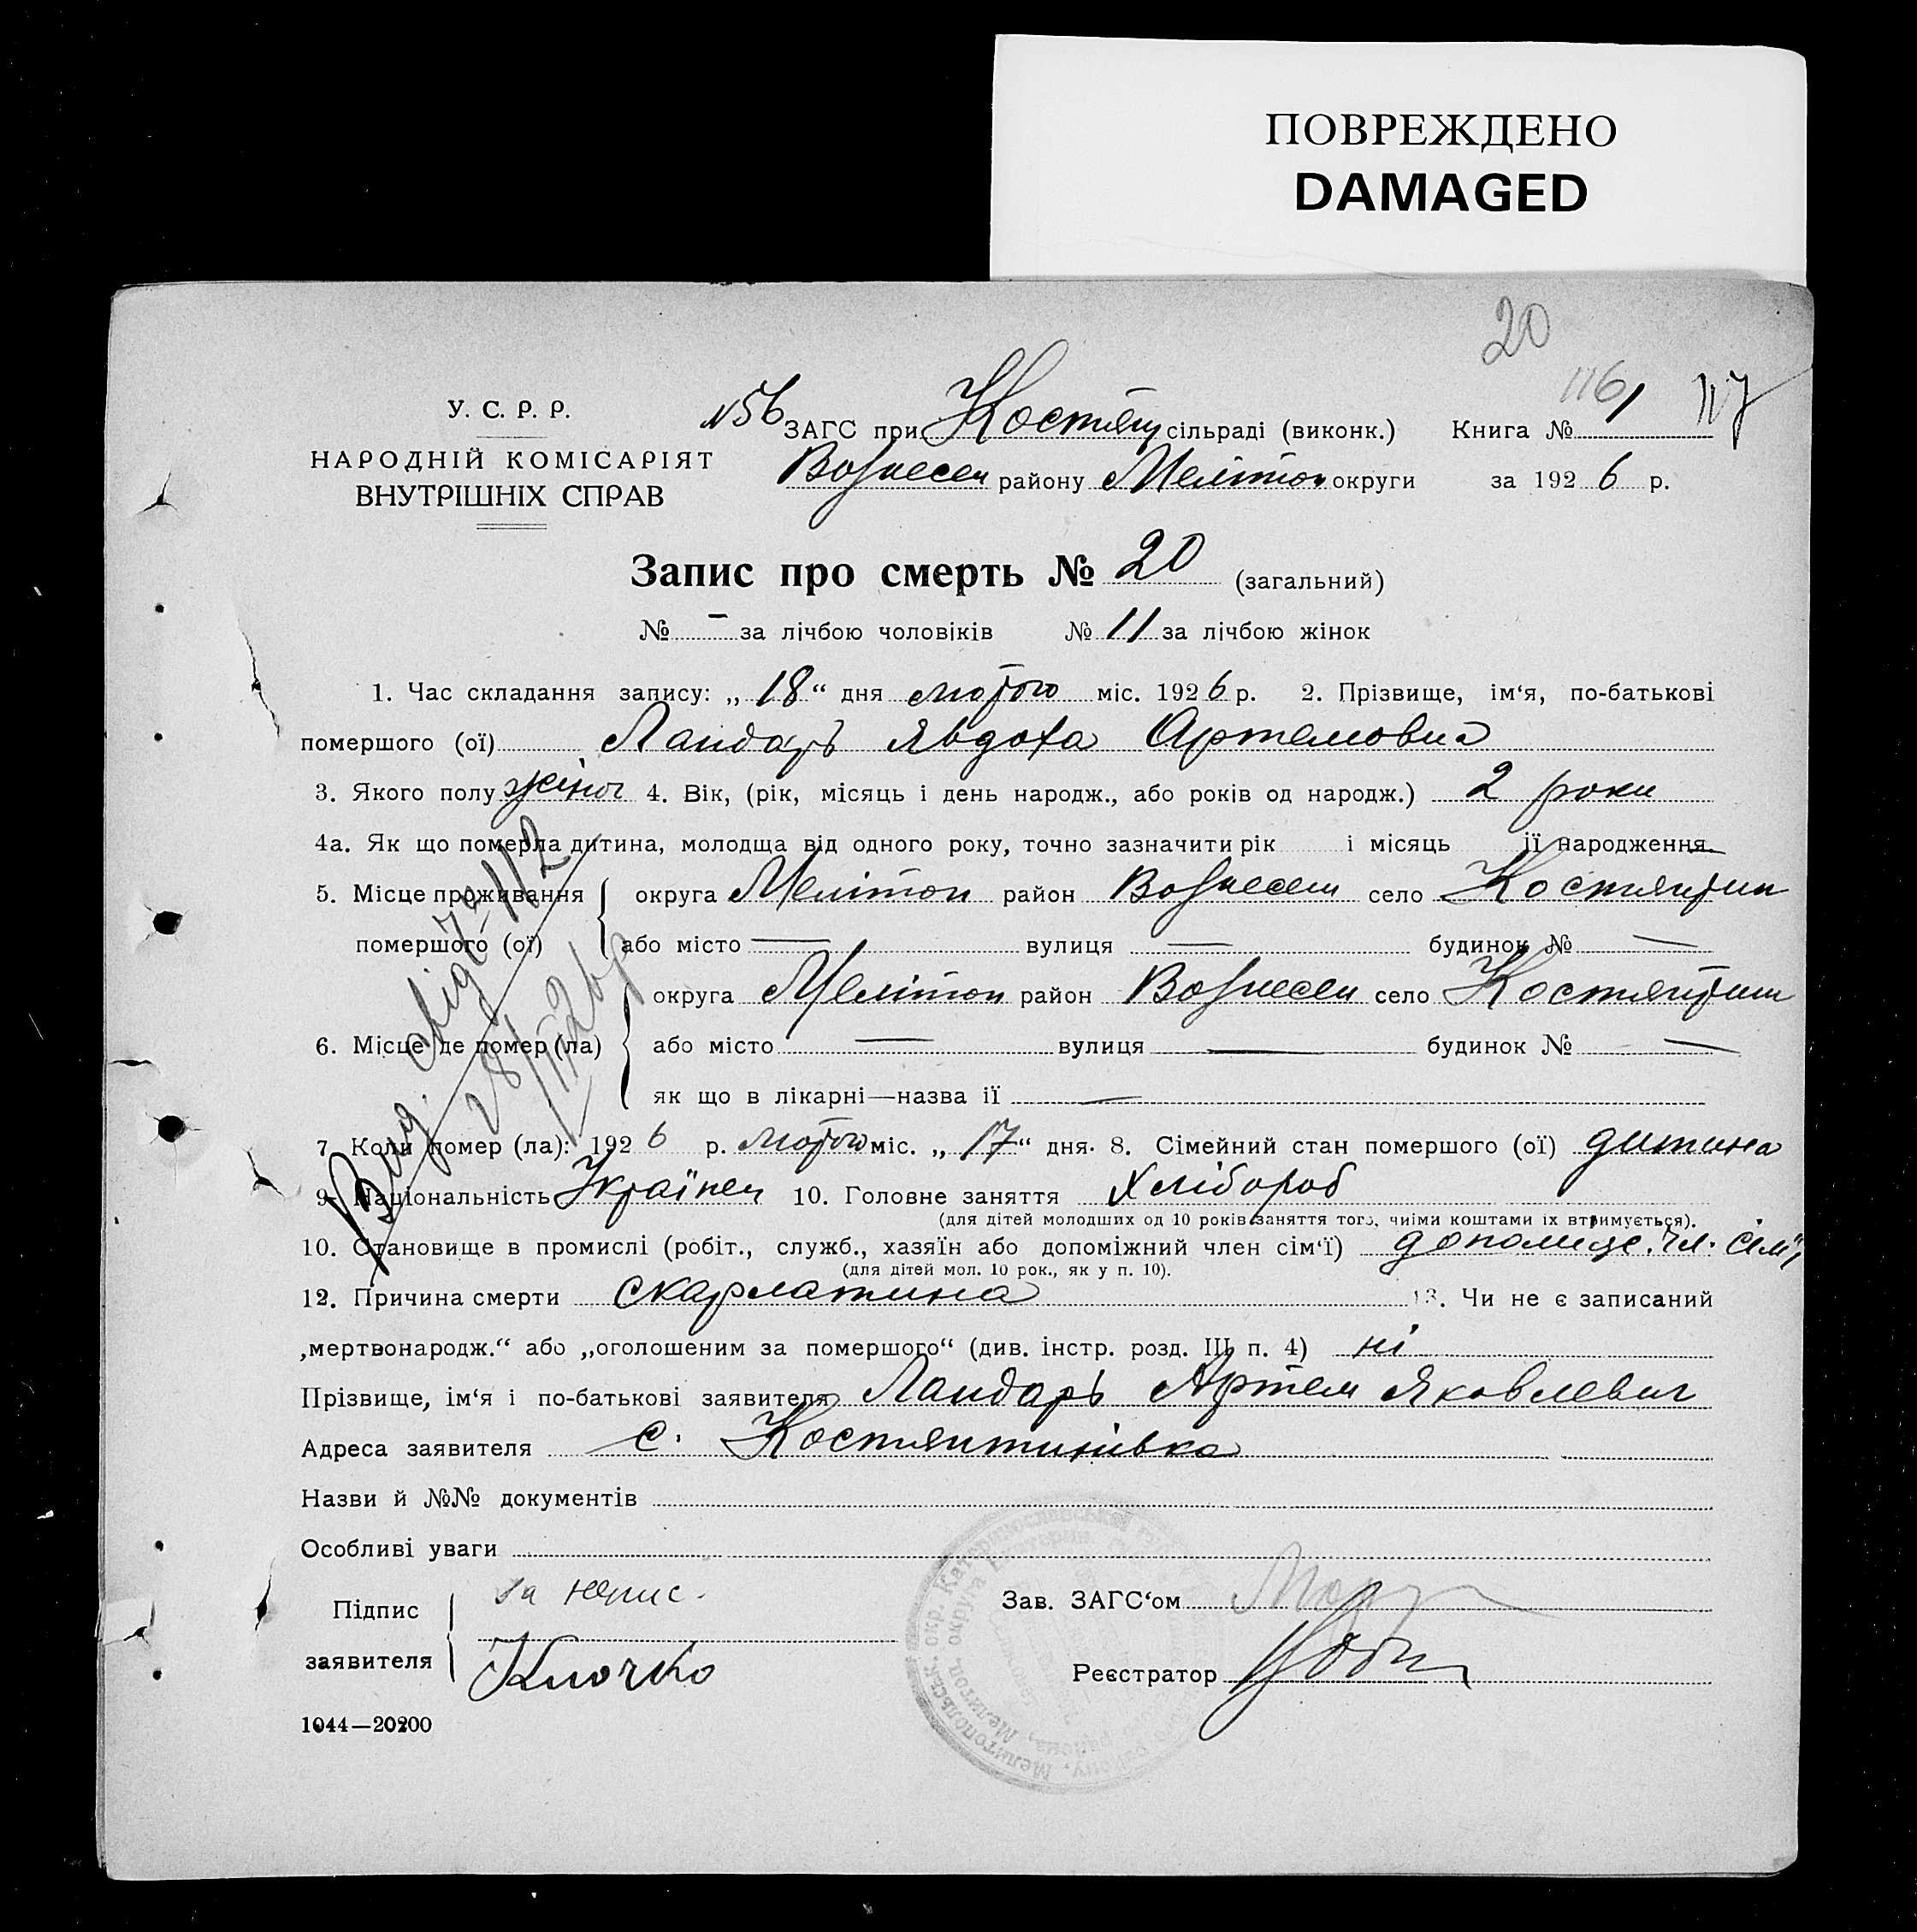 ПОВРЕЖДЕНО
DAMAGED
20
116 117
У. С. Р. Р.
НАРОДНІЙ КОМІСАРІЯТ
ВНУТРІШНІХ СПРАВ
№56 ЗАГС при Костянт сільраді (виконк.) Книга № 1
Вознесен району Мелітоп округи за 1926 р.
Запис про смерть № 20 (загальний)
№ – за лічбою чоловіків № 11 за лічбою жінок
1. Час складання запису: „18“ дня лютого міс. 1926 р. 2. Прізвище, ім‘я, по-батькові
помершого (ої) Ландарь Явдоха Артемовна
3. Якого полу жіноч 4. Вік, (рік, місяць і день народж., або років од народж.) 2 роки
4а. Як що померла дитина, молодша від одного року, точно зазначити рік і місяць її народження. —
5. Місце проживання помершого (ої) округа Мелітоп район Вознесен село Костянтин
або місто — вулиця — будинок № —
6. Місце де помер (ла) округа Мелітоп район Вознесен село Костянтин
або місто — вулиця — будинок № —
як що в лікарні—назва ії —
7. Коли помер (ла): 1926 р. лютого міс. „17“ дня. 8. Сімейний стан помершого (ої) дитина
9. Національність Українец 10. Головне заняття Хлібороб
(для дітей молодших од 10 років заняття того, чиїми коштами їх втримується).
10. Становище в промислі (робіт., служб., хазяїн або допоміжний член сім‘ї) допомідж. чл. сім'ї
(для дітей мол. 10 рок., як у п. 10).
12. Причина смерти скарлатина 13. Чи не є записаний
„мертвонародж.“ або „оголошеним за помершого“ (див. інстр. розд. III п. 4) ні
Прізвище, ім‘я і по-батькові заявителя Ландарь Артем Яковлевич
Адреса заявителя с. Костянтинівка
Назви й №№ документів
Особливі уваги
Підпис заявителя за непис.
Клочко
Зав. ЗАГС‘ом
Реєстратор
1044—20200
Вид. свід. № 112
28/II 26 р